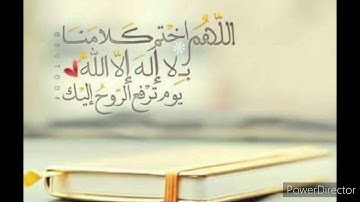 اللَّهُم اخْتِم كَلامَنَا
بِـ لا إِلَهَ إِلّا اللَّه
يَوم تَرْفَع الرّوحُ إِليْك
PowerDirector